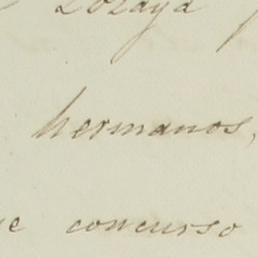 Lozaya
hermanos,
concurso